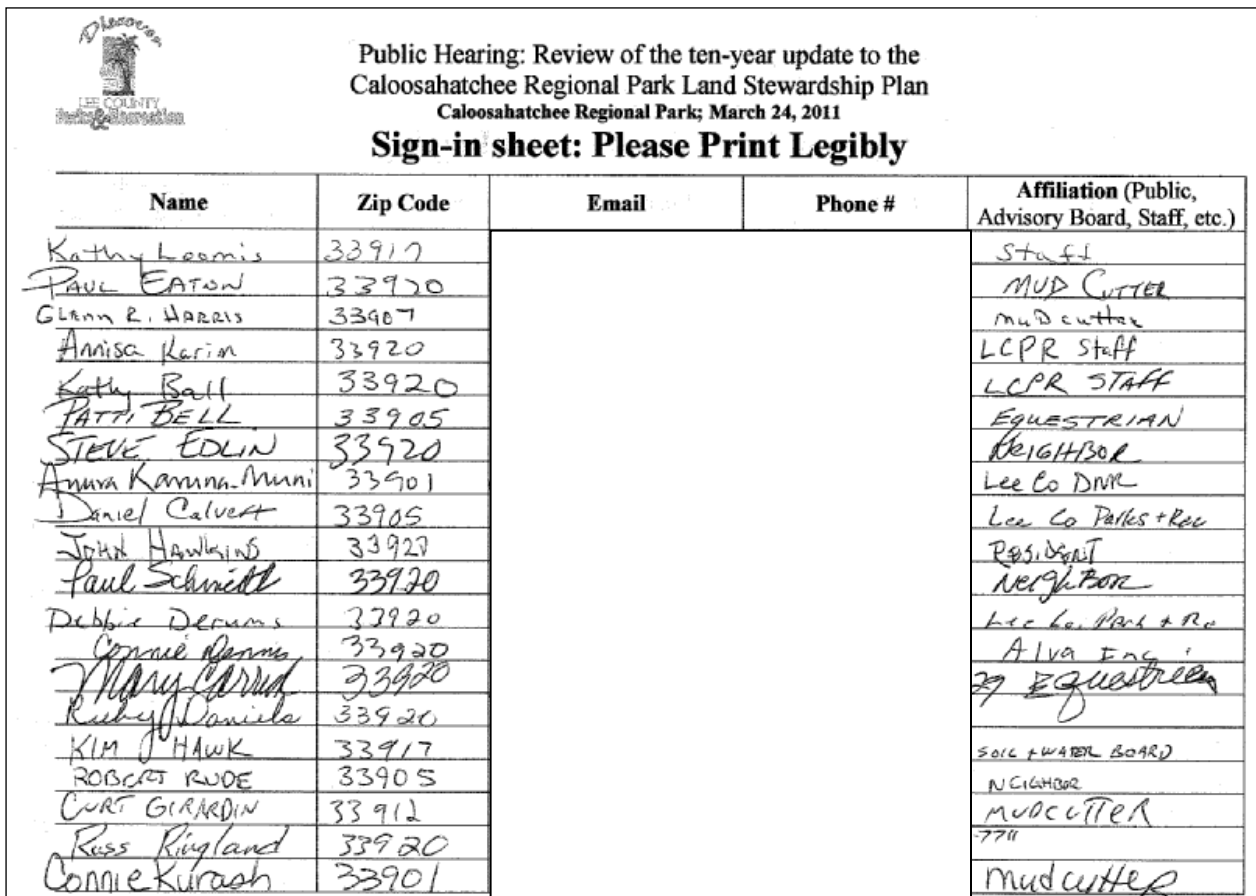 Discover
LEE COUNTY
Parks & Recreation
Public Hearing: Review of the ten-year update to the
Caloosahatchee Regional Park Land Stewardship Plan
Caloosahatchee Regional Park; March 24, 2011
Sign-in sheet: Please Print Legibly
Name Zip Code Email Phone # Affiliation (Public,
Advisory Board, Staff, etc.)
Kathy Loomis 33917 Staff
PAUL EATON 33920 MUD CUTTER
GLENN R. HARRIS 33907 muDcutter
Annisa Karim 33920 LCPR Staff
Kathy Ball 33920 LCPR STAFF
PATTI BELL 33905 EQUESTRIAN
STEVE EDLIN 33920 NEIGHBOR
Anura Karuna-Muni 33901 Lee Co DNR
Daniel Calvert 33905 Lee Co Parks + Rec
JOHN HAWKINS 33920 RESIDENT
Paul Schmidt 33920 NeighBor
Debbie 33920 Lee Co. Park + Re
Connie Dennis 33920 Alva Inc
Mary 33920 Equestrian
Ruby J Daniels 33920
KIM HAWK 33917 SOIL + WATER BOARD
ROBERT RUDE 33905 NEIGHBOR
CURT GIRARDIN 33912 MUDCUTTER
Russ Ringland 33920 -7711
Connie Kurash 33901 mudcutter